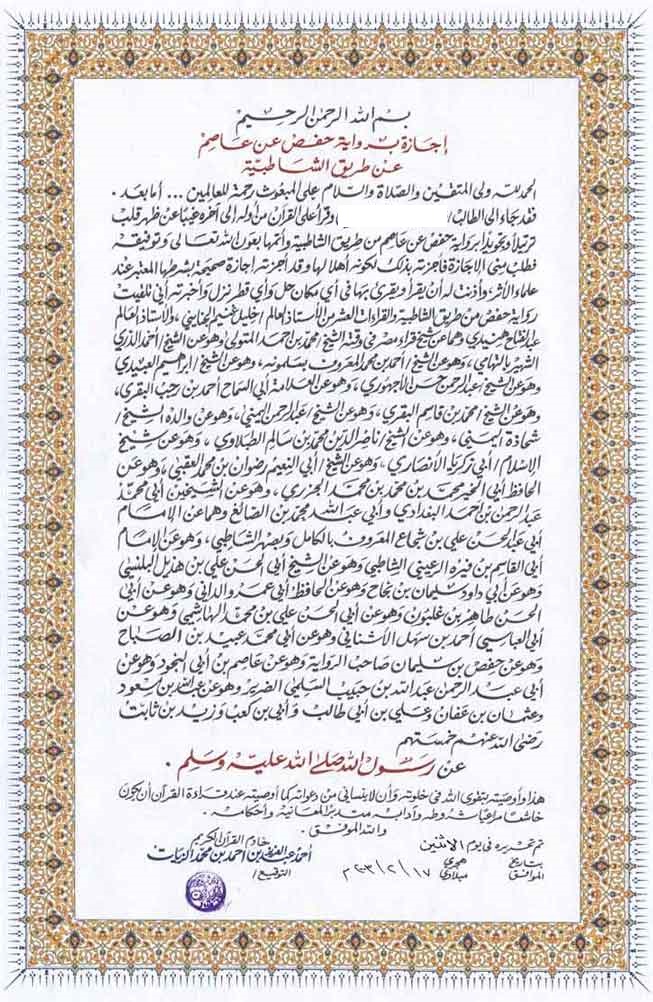 بسم الله الرحمن الرحيم
إجازة برواية حفص عن عاصم
عن طريق الشاطبية
الحمد لله ولي المتقين والصلاة والسلام على المبعوث رحمة للعالمين ... أما بعد .
فقد جاء إلى الطالب / وقرأ علي القرآن من أوله إلى آخره غيبًا عن ظهر قلب
ترتيلاً وتجويدًا برواية حفص عن عاصم من طريق الشاطبية وأتمها بعون الله تعالى وتوفيقه
فطلب مني الإجازة فأجزته بذلك لكونه أهلا لها وقد أجزته إجازة صحيحة بشرطها المعتبر عند
علماء الأثر وأذنت له أن يقرأ ويقرئ بها في أي مكان حل وأي قطر نزل وأخبرته أني تلقيت
رواية حفص من طريق الشاطبية والقراءات العشر من الأستاذ العالم / خليل غنيم الجنايني ، والأستاذ العالم
عبد الفتاح هنيدي وهما عن شيخ قراء مصر في وقته الشيخ / محمد بن أحمد المتولي وهو عن الشيخ / أحمد الدري
الشهير بالتهامي ، وهو عن الشيخ / أحمد بن محمد المعروف بسلمونه ، وهو عن الشيخ / إبراهيم العبيدي
وهو عن الشيخ / عبد الرحمن بن حسن الأجهوري ، وهو عن العلامة أبي السماح أحمد بن رجب البقري ،
وهو عن الشيخ / محمد بن قاسم البقري ، وهو عن الشيخ / عبد الرحمن اليمني ، وهو عن والده الشيخ /
شحاذة اليمني ، وهو عن الشيخ / ناصر الدين محمد بن سالم الطبلاوي ، وهو عن شيخ
الإسلام / أبي زكريا الأنصاري ، وهو عن الشيخ / أبي النعيم رضوان بن محمد العقبي ، وهو عن
الحافظ أبي الخير محمد بن محمد بن محمد الجزري ، وهو عن الشيخين أبي محمد
عبد الرحمن بن أحمد البغدادي وأبي عبد الله محمد بن الصائغ وهما عن الإمام
أبي الحسن علي بن شجاع المعروف بالكامل وبصهر الشاطبي ، وهو عن الإمام
أبي القاسم بن فيره الرعيني الشاطبي وهو عن الشيخ أبي الحسن علي بن هذيل البلنسي
وهو عن أبي داود سليمان بن نجاح وهو عن الحافظ : أبي عمرو الداني وهو عن أبي
الحسن طاهر بن غلبون وهو عن أبي الحسن علي بن محمد الهاشمي وهو عن
أبي العباس أحمد بن سهل الأشناني وهو عن أبي محمد عبيد بن الصباح
وهو عن حفص بن سليمان صاحب الرواية وهو عن عاصم بن أبي النجود وهو عن
أبي عبد الرحمن عبد الله بن حبيب السلمي الضرير وهو عن عبد الله بن مسعود
وعثمان بن عفان وعلي بن أبي طالب وأبي بن كعب وزيد بن ثابت
رضي الله عنهم خمستهم
عن رسول الله صلى الله عليه وسلم .
هذا وأوصيته بتقوى الله في خلوته وأن لا ينساني من دعواته كما أوصيته عند قراءة القرآن أن يكون
خاشعًا مراعيًا شروطه وآدابه متدبرًا لمعانيه وأحكامه .
والله الموفق .
تم تحريره في يوم الاثنين
بتاريخ هجري
الموافق ٢٠٠٣/٢/١٧ م ميلادي
خادم القرآن الكريم
أحمد عبد العزيز بن أحمد بن محمد الزيات
التوقيع /